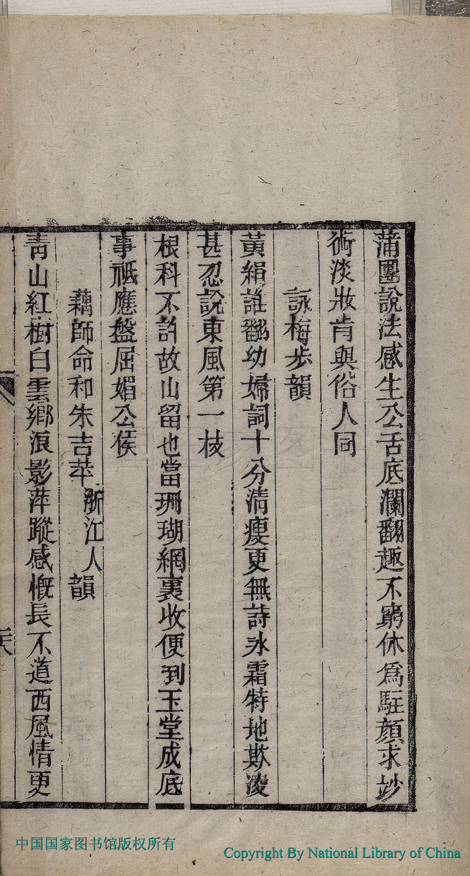 蒲團說法感生公舌底瀾翻趣不窮休爲駐顏求妙
術淡妝肯與俗人同
詠梅步韻
黃絹誰翻幼婦詞十分清瘦更無詩冰霜特地欺凌
甚忍說東風第一枝
根科不許故山留也當珊瑚網裏收便到玉堂成底
事祗應盤屈媚公侯
藕師命和朱吉萃浙江人韻
青山紅樹白雲鄉浪影萍蹤感慨長不道西風情更
中国国家图书馆版权所有
Copyright By National Library of China